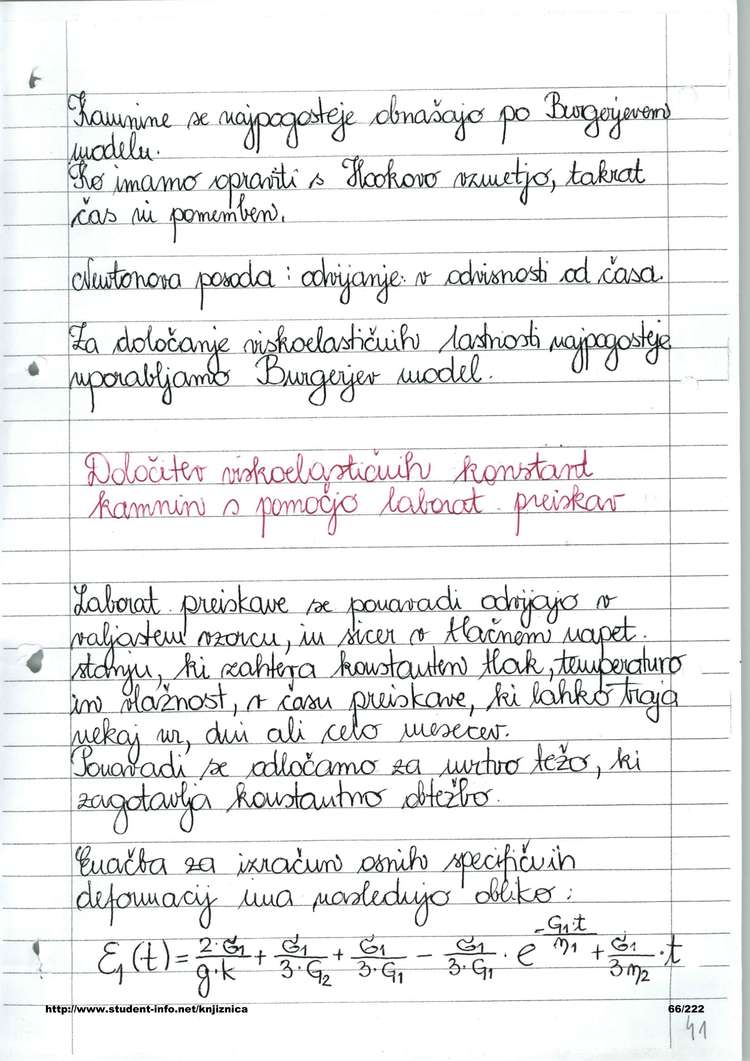 Kamnine se najpogosteje obnašajo po Burgerjevem
modelu.
Ko imamo opraviti s Hookovo vzmetjo, takrat
čas ni pomemben.
Newtonova posoda : odvijanje v odvisnosti od časa.
Za določanje viskoelastičnih lastnosti najpogosteje
uporabljamo Burgerjev model.
Določitev viskoelastičnih konstant
kamnin s pomočjo laborat. preiskav
Laborat. preiskave se ponavadi odvijajo v
valjastem vzorcu, in sicer v tlačnem napet.
stanju, ki zahteva konstanten tlak, temperaturo
in vlažnost, v času preiskave, ki lahko traja
nekaj ur, dni ali celo mesecev.
Ponavadi se odločamo za mrtvo težo, ki
zagotavlja konstantno obtežbo.
Enačba za izračun osnih specifičnih
deformacij ima naslednjo obliko :
ε₁(t) = 2·σ₁/g·k + σ₁/3·G₂ + σ₁/3·G₁ − σ₁/3·G₁ · e^(−G₁·t/η₁) + σ₁/3η₂ · t
http://www.student-info.net/knjiznica 66/222
41